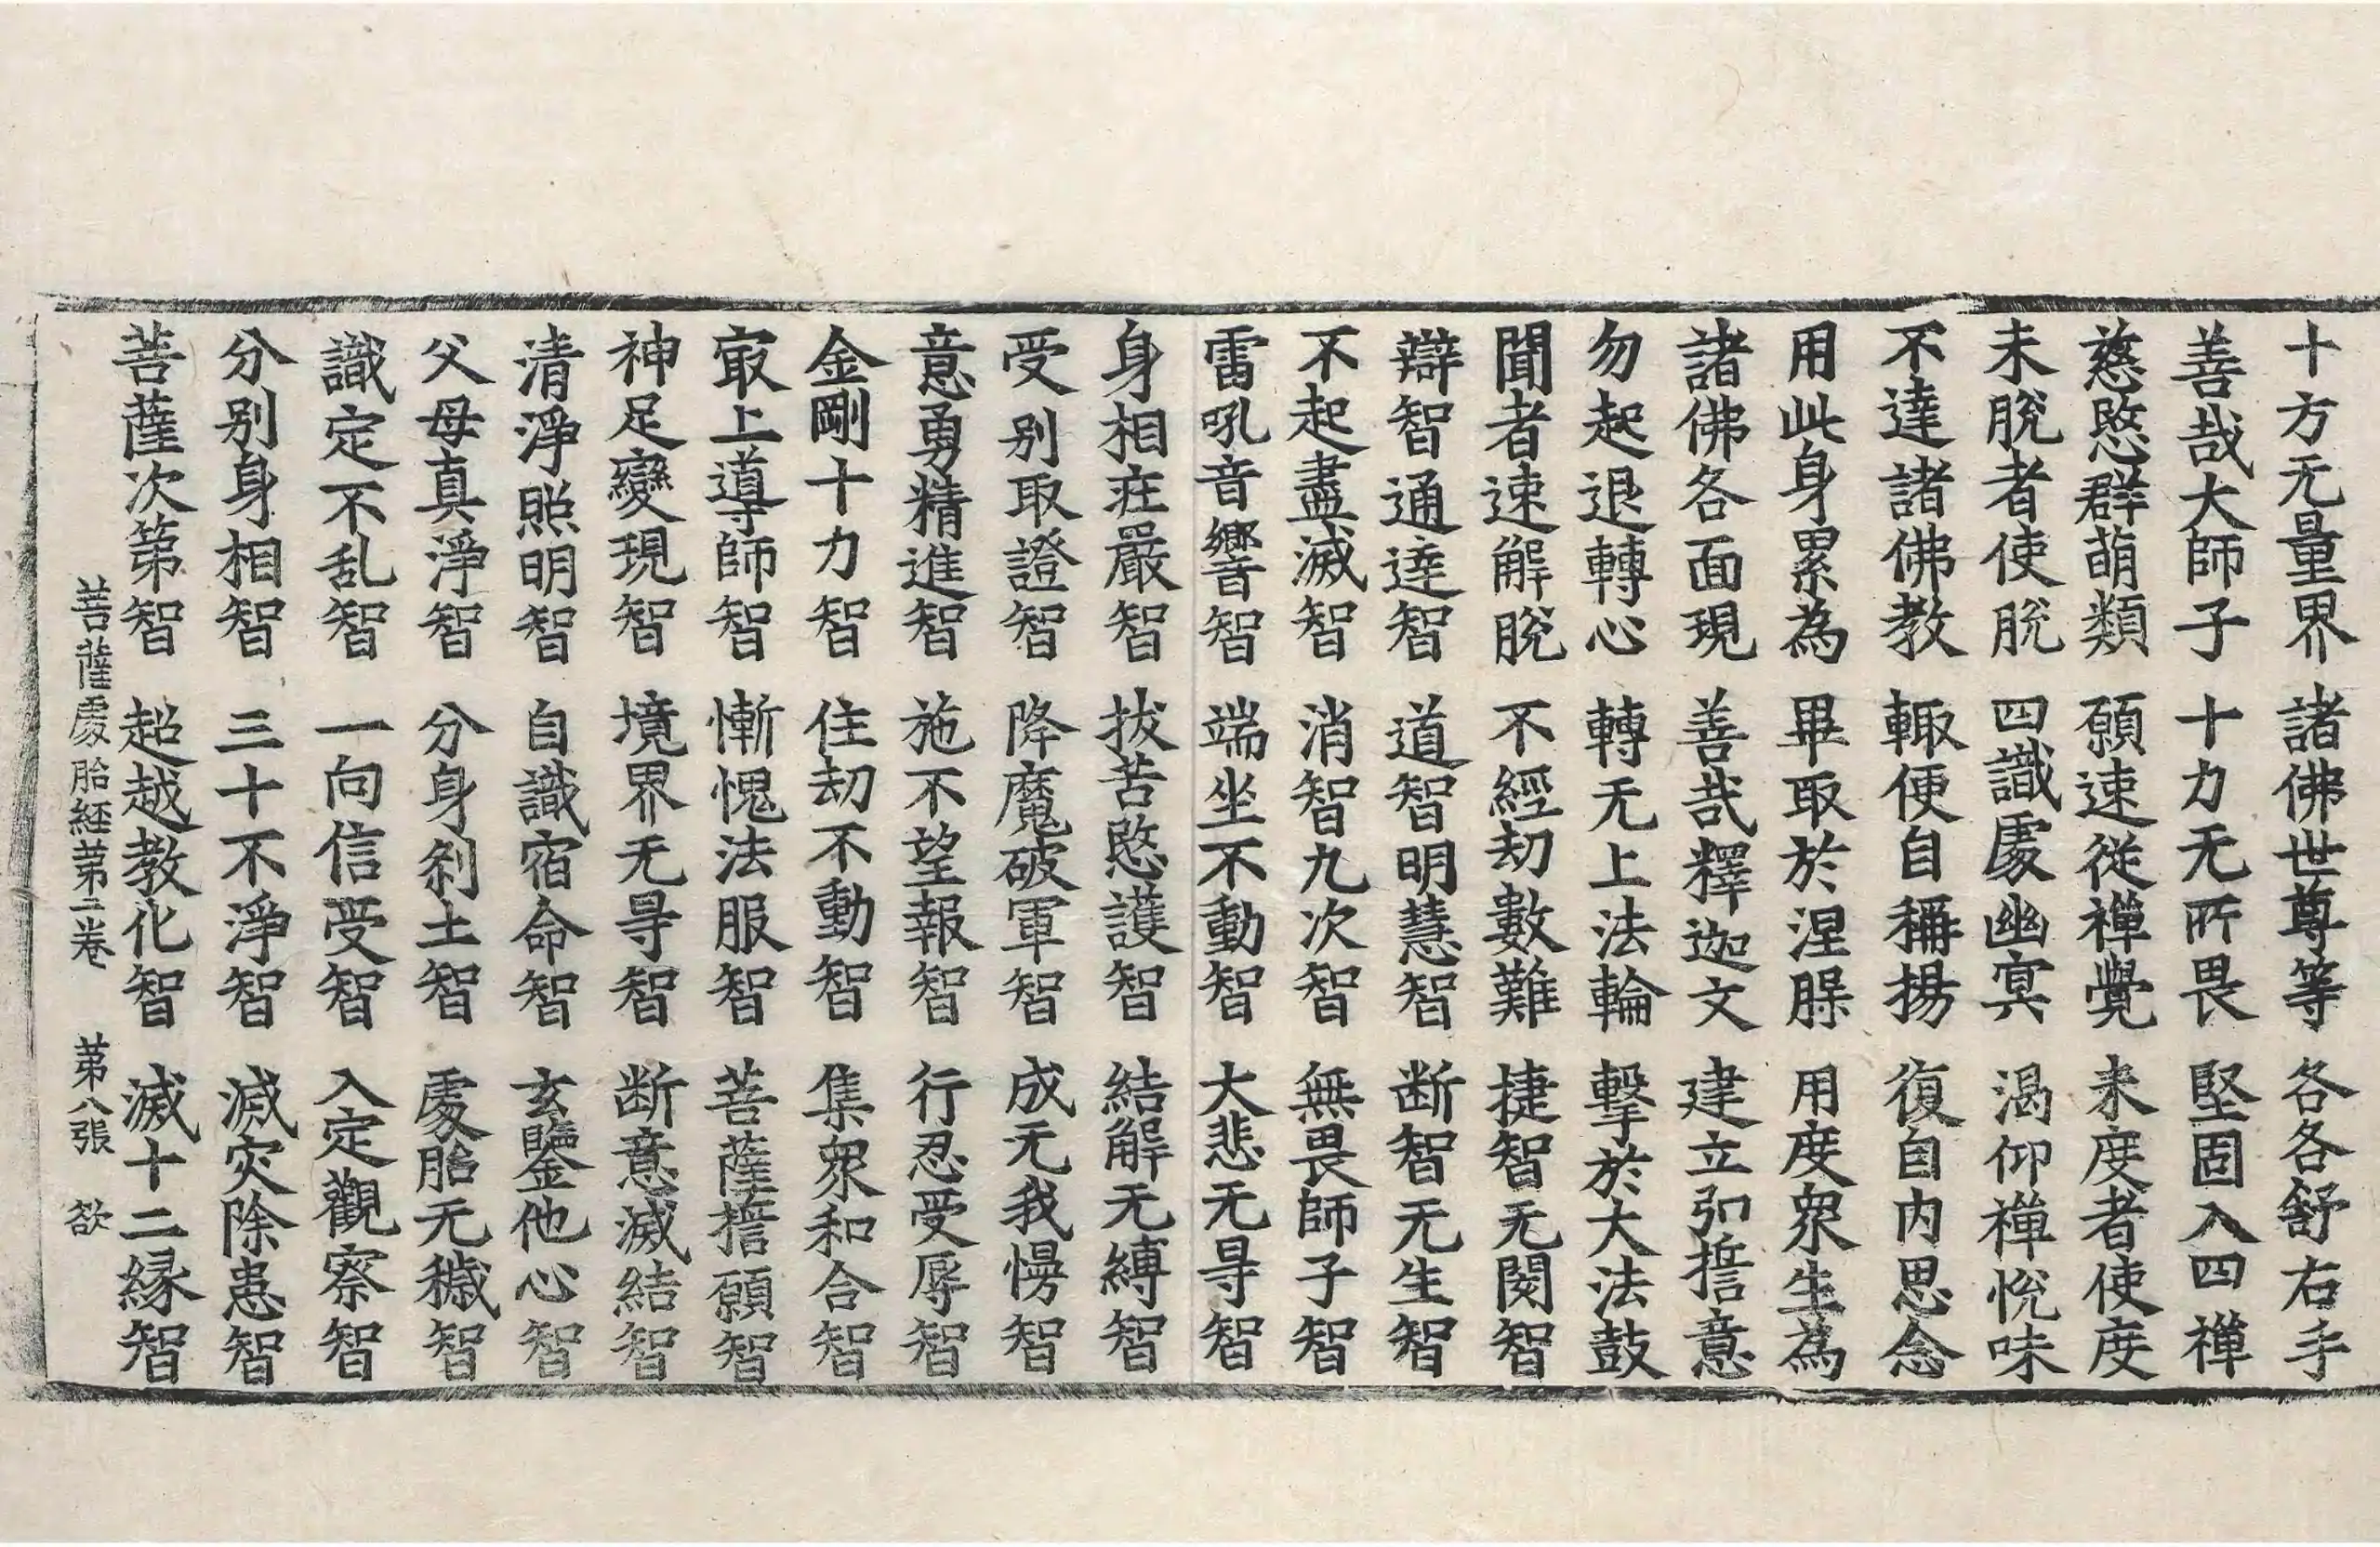 十方无量界　諸佛世尊等　各各舒右手
善哉大師子　十力无所畏　堅固入四禪
慈愍群萌類　願速從禪覺　未度者使度
未脫者使脫　四識處幽冥　渴仰禪悅味
不達諸佛教　輙便自稱揚　復自內思念
用此身累為　畢取於涅臊　用度眾生為
諸佛各面現　善哉釋迦文　建立弘誓意
勿起退轉心　轉无上法輪　擊於大法鼓
聞者速解脫　不經劫數難　捷智无閡智
辯智通達智　道智明慧智　断智无生智
不起盡滅智　消智九次智　無畏師子智
雷吼音響智　端坐不動智　大悲无㝵智
身相庄嚴智　拔苦愍護智　結解无縛智
受別取證智　降魔破軍智　成无我慢智
意勇精進智　施不望報智　行忍受辱智
金剛十力智　住劫不動智　集眾和合智
㝡上導師智　慚愧法服智　菩薩誓願智
神足變現智　境界无㝵智　断意滅結智
清淨照明智　自識宿命智　玄鑒他心智
父母真淨智　分身刹土智　處胎无穢智
識定不乱智　一向信受智　入定觀察智
分別身相智　三十不淨智　滅灾除患智
菩薩次第智　超越教化智　滅十二緣智
菩薩處胎経苐二卷　苐八張　欲